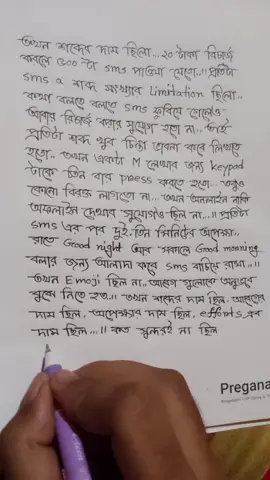 তখন শব্দের দাম ছিলো... ২০ টাকা রিচার্জ
করলে ৫০০ টা sms পাওয়া যেতো..।। প্রতিটা
sms এ শব্দ সংখ্যার limitation ছিলো..
কথা বলতে বলতে sms ফুরিয়ে গেলেও
আবার রিচার্জ করার সুযোগ হতো না.. তাই
প্রতিটা শব্দ খুব চিন্তা ভাবনা করে লিখতে
হতো.. তখন একটা M লেখার জন্য keypad
টাকে তিন বার press করতে হতো... তবুও
কোনো বিরক্ত লাগতো না... তখন অনলাইন নাকি
অফলাইন দেখার সুযোগও ছিল না...।। প্রতিটা
sms এর পর দুই, তিন মিনিটের অপেক্ষা..
রাতে Good night আর সকালে Good morning
বলার জন্য আলাদা করে sms বাঁচিয়ে রাখা..।।
তখন Emoji ছিল না.. আবেগ গুলোকে অনুভবে
বুঝে নিতে হত..।। তখন শব্দের দাম ছিল, আবেগের
দাম ছিল, অপেক্ষার দাম ছিল, efforts এর
দাম ছিল...।। কত সুন্দরই না ছিল
Pregana